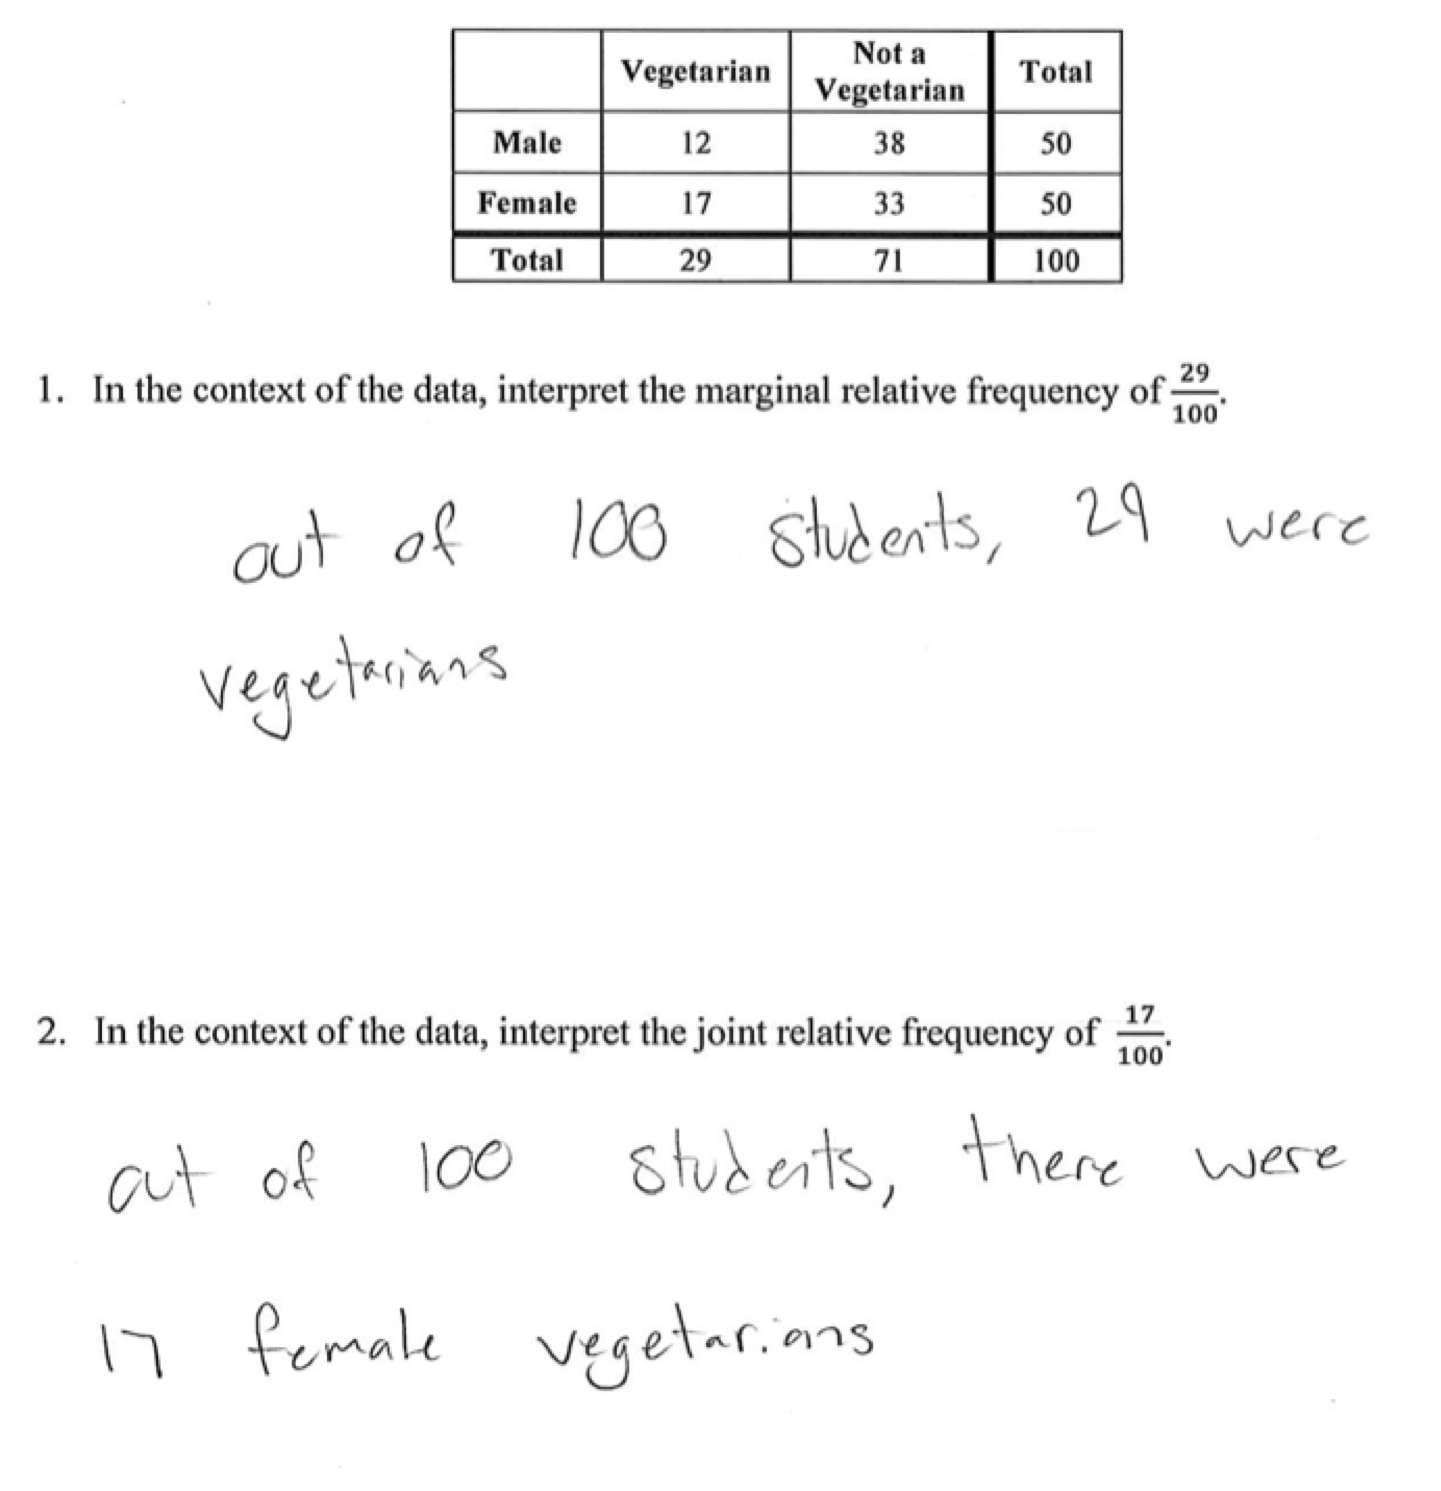 Vegetarian Not a Vegetarian Total
Male 12 38 50
Female 17 33 50
Total 29 71 100
1. In the context of the data, interpret the marginal relative frequency of 29/100.
out of 100 students, 29 were
vegetarians
2. In the context of the data, interpret the joint relative frequency of 17/100.
out of 100 students, there were
17 female vegetarians